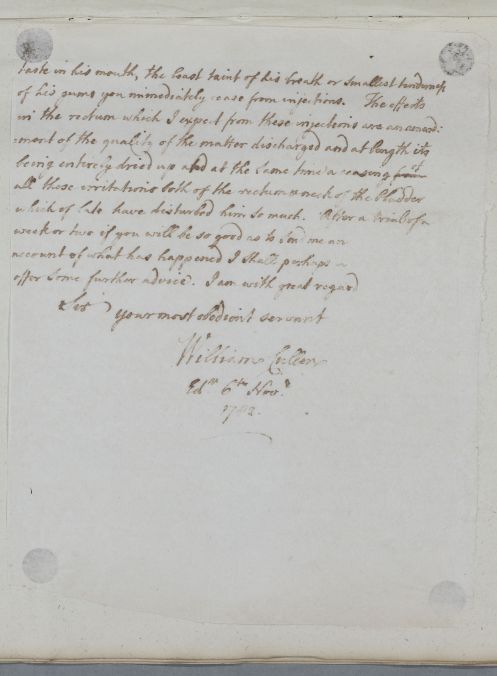 taste in his mouth, the least taint of his breath or smallest tenderness
of his gums you immediately cease from injections. The effects
in the rectum which I expect from these injections are an amend:
:ment of the quality of the matter discharged and at length its
being entirely dried up and at the same time a ceasing from
all those irritations both of the rectum & neck of the bladder
which of late have disturbed him so much. After a trial of a
week or two if you will be so good as to send me an
account of what has happened I shall perhaps
offer some further advice. I am with great regard
Sir your most obedient servant
William Cullen
Edr. 6th Novr.
1782.